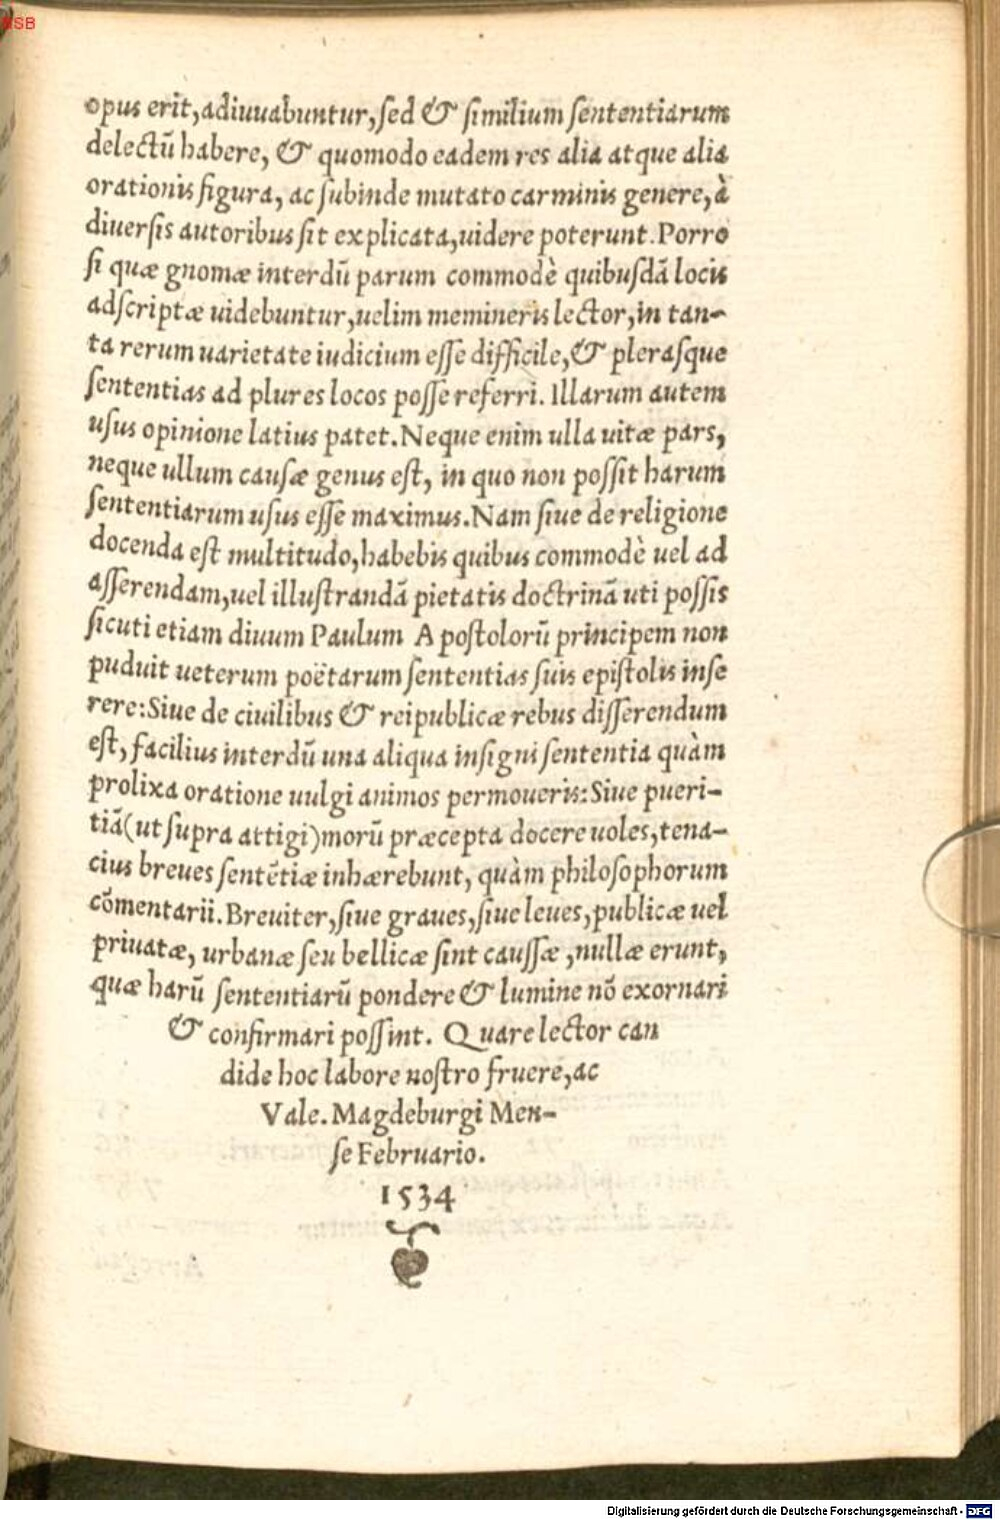 BSB
opus erit,adiuuabuntur,ſed & ſimilium ſententiarum
delectũ habere, & quomodo eadem res alia atque alia
orationis figura, ac ſubinde mutato carminis genere,à
diuerſis autoribus ſit explicata,uidere poterunt.Porro
ſi quæ gnomæ interdũ parum commodè quibuſdã locis
adſcriptæ uidebuntur,uelim memineris lector,in tan-
ta rerum uarietate iudicium eſſe difficile,& pleraſque
ſententias ad plures locos poſſe referri. Illarum autem
uſus opinione latius patet.Neque enim ulla uitæ pars,
neque ullum cauſæ genus eſt, in quo non poſſit harum
ſententiarum uſus eſſe maximus.Nam ſiue de religione
docenda eſt multitudo,habebis quibus commodè uel ad
aſſerendam,uel illuſtrandã pietatis doctrinã uti poſſis
ſicuti etiam diuum Paulum Apoſtolorũ principem non
puduit ueterum poëtarum ſententias ſuis epiſtolis inſe
rere:Siue de ciuilibus & reipublicæ rebus diſſerendum
eſt, facilius interdũ una aliqua inſigni ſententia quàm
prolixa oratione uulgi animos permoueris:Siue pueri-
tiã(ut ſupra attigi)morũ præcepta docere uoles,tena-
cius breues ſentẽtiæ inhærebunt, quàm philoſophorum
cõmentarii.Breuiter,ſiue graues,ſiue leues,publicæ uel
priuatæ, urbanæ ſeu bellicæ ſint cauſſæ,nullæ erunt,
quæ harũ ſententiarũ pondere & lumine nõ exornari
& confirmari poſſint. Quare lector can
dide hoc labore noſtro fruere,ac
Vale.Magdeburgi Men-
ſe Februario.
1534
Digitalisierung gefördert durch die Deutsche Forschungsgemeinschaft - DFG